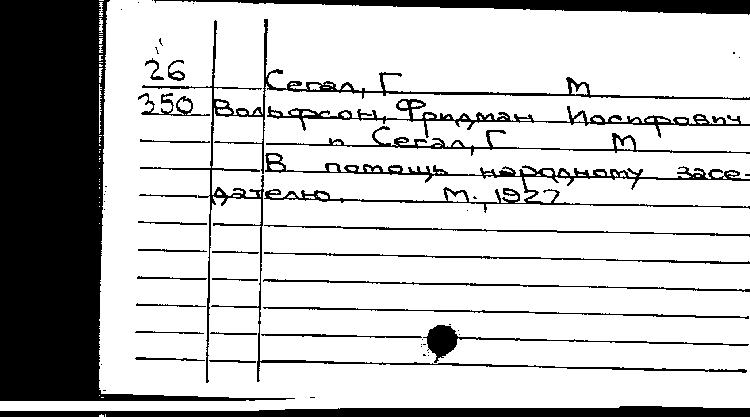 26 Сегал, Г М
350 Вольфсон, Фридман Иосифович
и Сегал, Г М
В помощь народному засе-
дателю. М., 1927